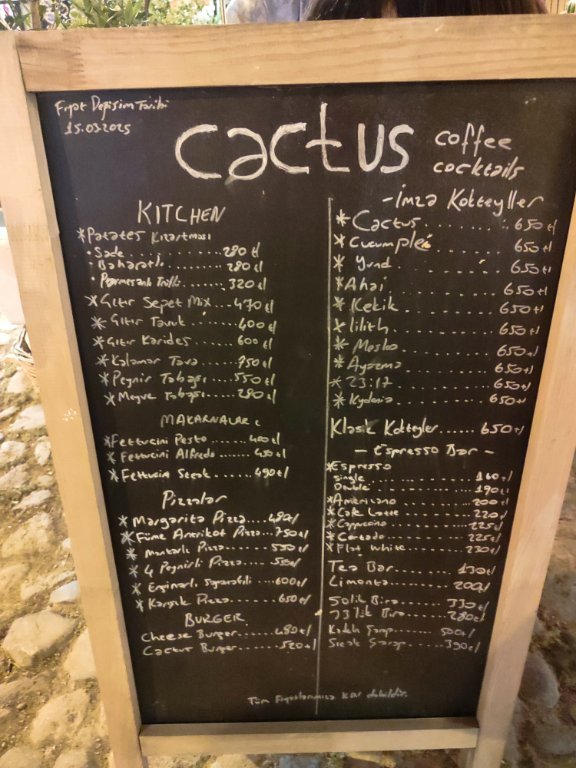 Fiyat Değişim Tarihi
15.03.2025
cactus
coffee
cocktails
KITCHEN
*Patates Kızartması
- Sade ........ 280 tl
- Baharatlı ........ 280 tl
Parmesanlı Trüflü ..... 320 tl
*Çıtır Sepet Mix ... 470 tl
*Çıtır Tavuk ...... 400 tl
*Çıtır Karides ..... 600 tl
*Kalamar Tava ..... 750 tl
*Peynir Tabağı ..... 550 tl
*Meyve Tabağı ..... 280 tl
MAKARNALAR
*Fettucini Pesto ..... 400 tl
*Fettucini Alfredo .... 450 tl
*Fettucini Steak ..... 490 tl
Pizzalar
*Margarita Pizza .... 480 tl
*Füme Antrikot Pizza .. 750 tl
*Mantarlı Pizza ..... 550 tl
*4 Peynirli Pizza .... 550 tl
*Enginarlı ..... 600 tl
*Karışık Pizza ..... 650 tl
BURGER
Cheese Burger ...... 480 tl
Cactus Burger ...... 520 tl
- İmza Kokteyller
*Cactus ........ 650 tl
*Cucumple ........ 650 tl
*Yund ........ 650 tl
*Ahai ........ 650 tl
*Kekik ........ 650 tl
*lilith ........ 650 tl
*Mosho ........ 650 tl
*Ayzema ........ 650 tl
*23:17 ........ 650 tl
*Kydonia ........ 650 tl
Klasik Kokteyller ...... 650 tl
- Espresso Bar -
*Espresso
Single ........ 160 tl
Double ........ 190 tl
*Americano ........ 200 tl
*Cafe Latte ........ 220 tl
*Cappuccino ........ 225 tl
*Cortado ........ 225 tl
*Flat White ........ 230 tl
Tea Bar ........ 130 tl
Limonta ........ 200 tl
50 lik Bira ...... 330 tl
33 lik Bira ...... 280 tl
Kadeh Şarap ..... 500 tl
Sıcak Şarap ..... 390 tl
Tüm Fiyatlarımıza Kdv dahildir.